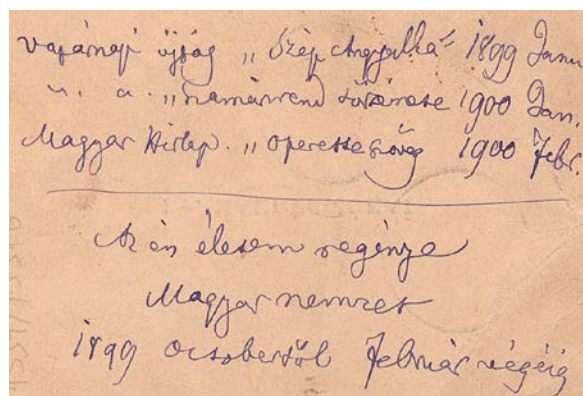 Vasárnapi újság „Szép Angyalka" 1899 Janu
u. a. „Szamárrend története 1900 Jan.
Magyar Hirlap. „operetteszöveg 1900 Febr.
Az én életem regénye
Magyar nemzet
1899 octobertől Február végéig